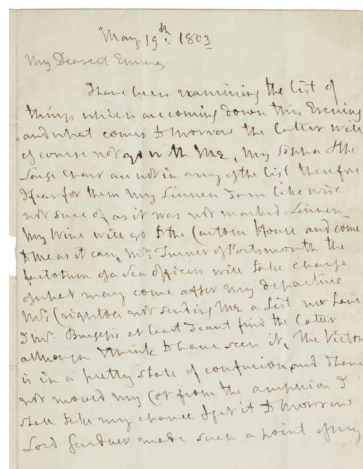 May 19th. 1803
My Dearest Emma
I have been examining the list of
things which are coming down this Evening
and what comes to morrow the latter will
of course not go with Me, My Sopha & the
large chair are not in any of the list therefore
I fear for them my Linnen I am like wise
not sure of as it was not marked Linnen
My Wine will go to the Custom House and come
to me as it can, Mr. Turner of Portsmouth the
factotum of sea officers will take charge
of what may come after my departure
Mr. not sending me a list nor have
I Mr. at least I cant find the latter
although I think I have seen it, the Victory
is in a pretty state of confusion and I have
not moved my Cot from the amphion I
shall take my chance & get it to morrow
Lord Gardner made such a point of my